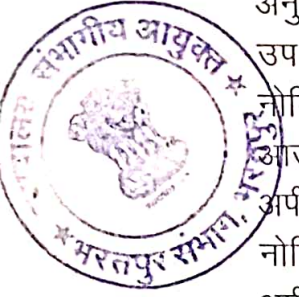 संभागीय आयुक्त
भरतपुर संभाग, भरतपुर
अनु
उप
नोति
अपी
नोति